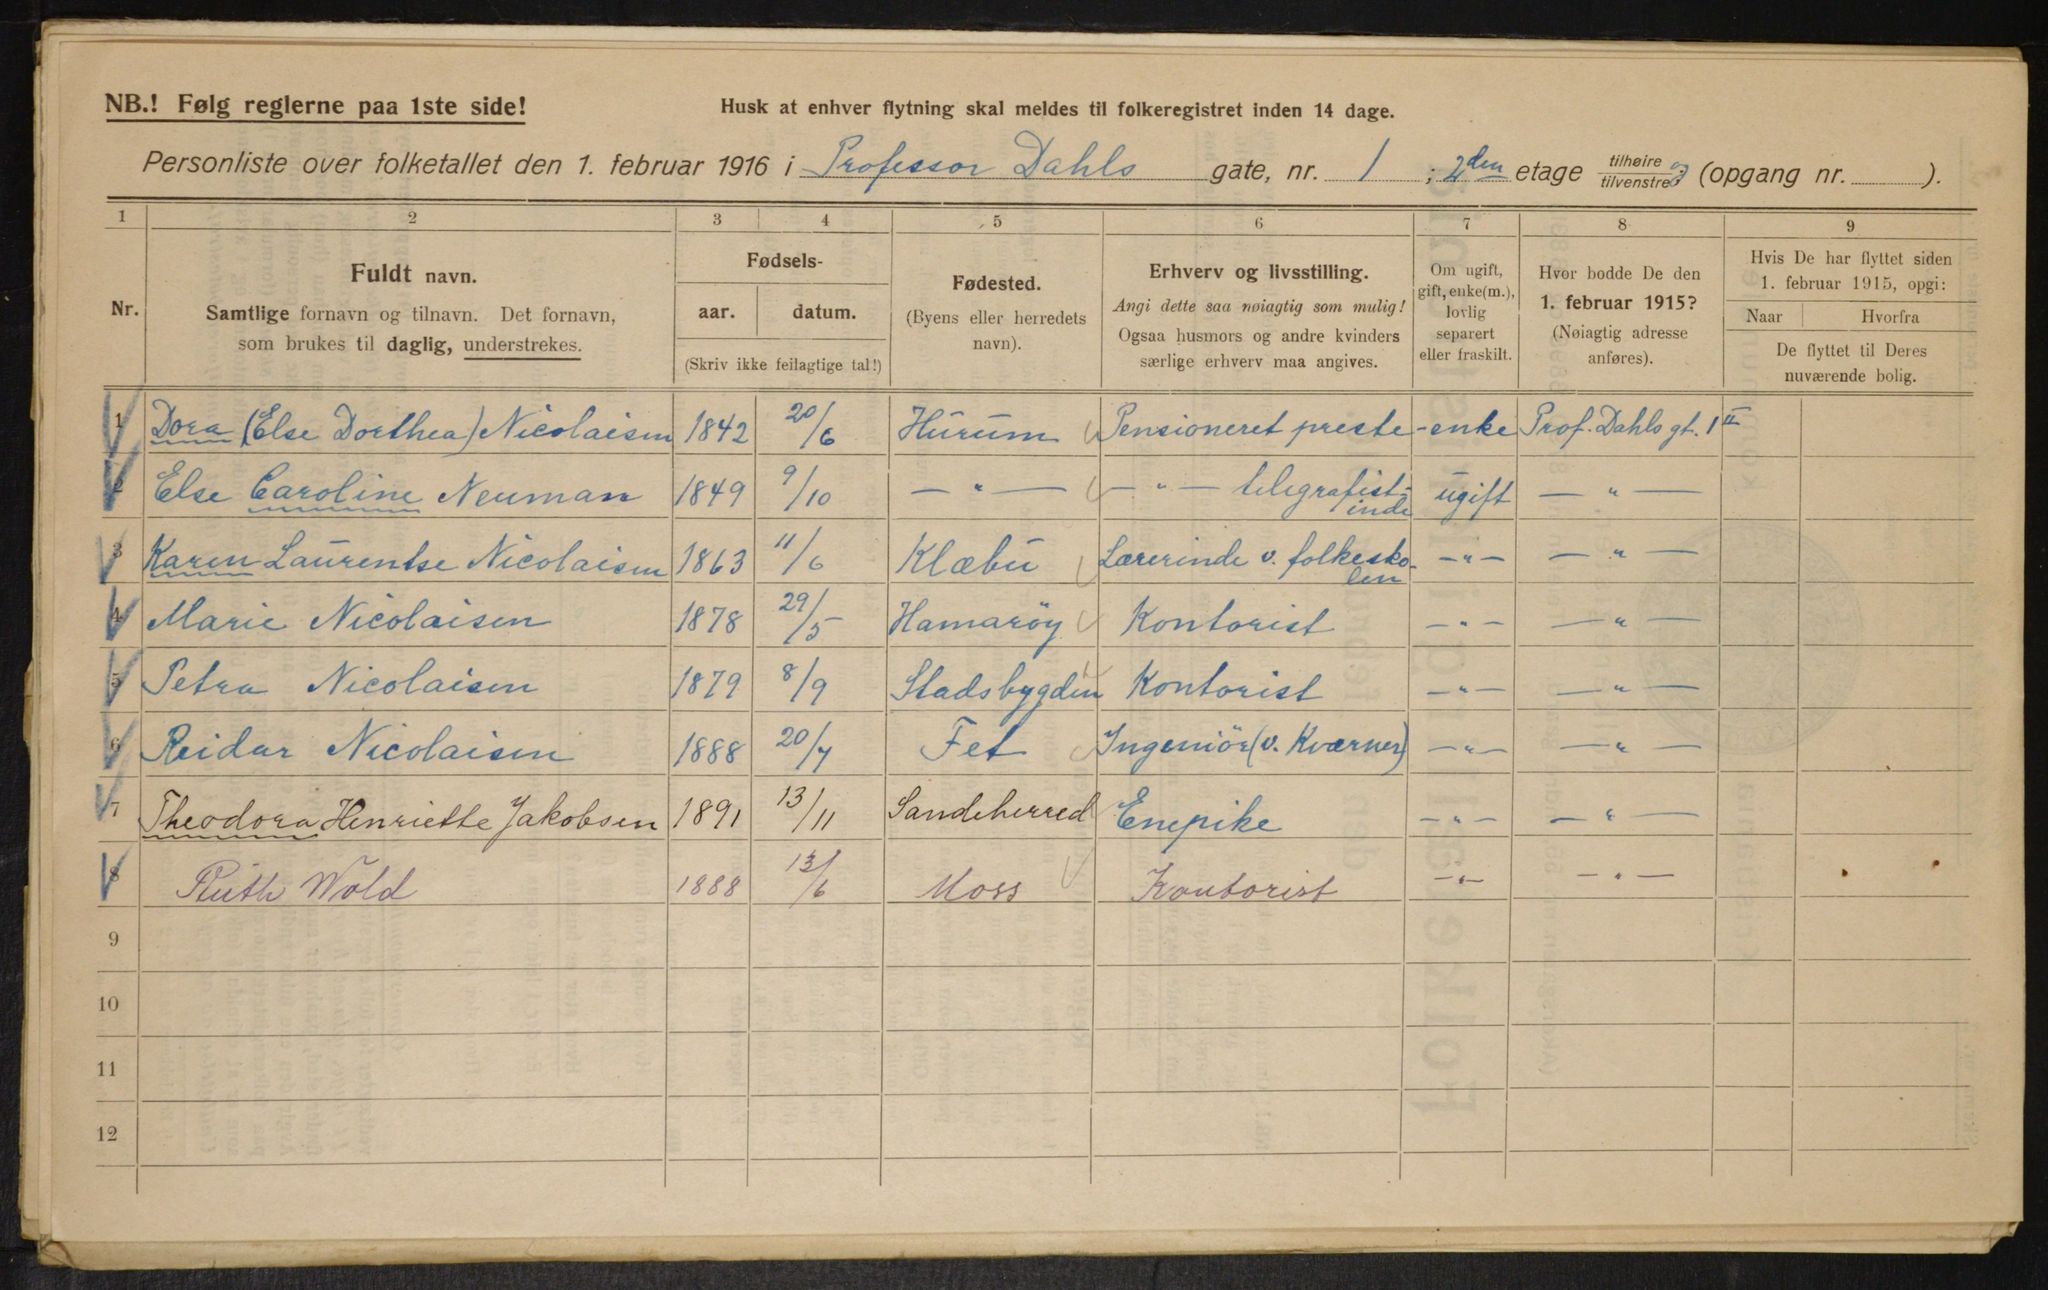 NB.! Følg reglerne paa 1ste side!
Husk at enhver flytning skal meldes til folkeregistret inden 14 dage.
Personliste over folketallet den 1. februar 1916 i Professor Dahls gate, nr. 1 ; 2den etage tilhøire og tilvenstre (opgang nr. ).
1 2 3 4 5 6 7 8 9
Nr.
Fuldt navn.
Samtlige fornavn og tilnavn. Det fornavn,
som brukes til daglig, understrekes.
Fødsels-
aar. datum.
(Skriv ikke feilagtige tal!)
Fødested.
(Byens eller herredets
navn).
Erhverv og livsstilling.
Angi dette saa nøiagtig som mulig!
Ogsaa husmors og andre kvinders
særlige erhverv maa angives.
Om ugift,
gift, enke(m.),
lovlig
separert
eller fraskilt.
Hvor bodde De den
1. februar 1915?
(Nøiagtig adresse
anføres).
Hvis De har flyttet siden
1. februar 1915, opgi:
Naar Hvorfra
De flyttet til Deres
nuværende bolig.
1 Dora (Else Dorthea) Nicolaisen 1842 20/6 Hurum Pensioneret preste-enke Prof. Dahls gt. 1 II
2 Else Caroline Neuman 1849 9/10 — " — — " — telegrafistinde ugift — " —
3 Karen Laurentse Nicolaisen 1863 11/6 Klæbu Lærerinde v. folkeskolen — " — — " —
4 Marie Nicolaisen 1878 29/5 Hamarøy Kontorist — " — — " —
5 Petra Nicolaisen 1879 8/9 Stadsbygden Kontorist — " — — " —
6 Reidar Nicolaisen 1888 20/7 Fet Ingeniör (v. Kværner) — " — — " —
7 Theodora Henriette Jakobsen 1891 13/11 Sandeherred Enepike — " — — " —
8 Ruth Wold 1888 13/6 Moss Kontorist — " — — " —
9
10
11
12